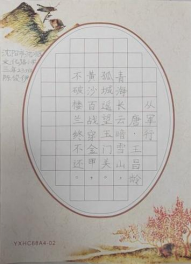 从军行
唐·王昌龄
青海长云暗雪山，
孤城遥望玉门关。
黄沙百战穿金甲，
不破楼兰终不还。